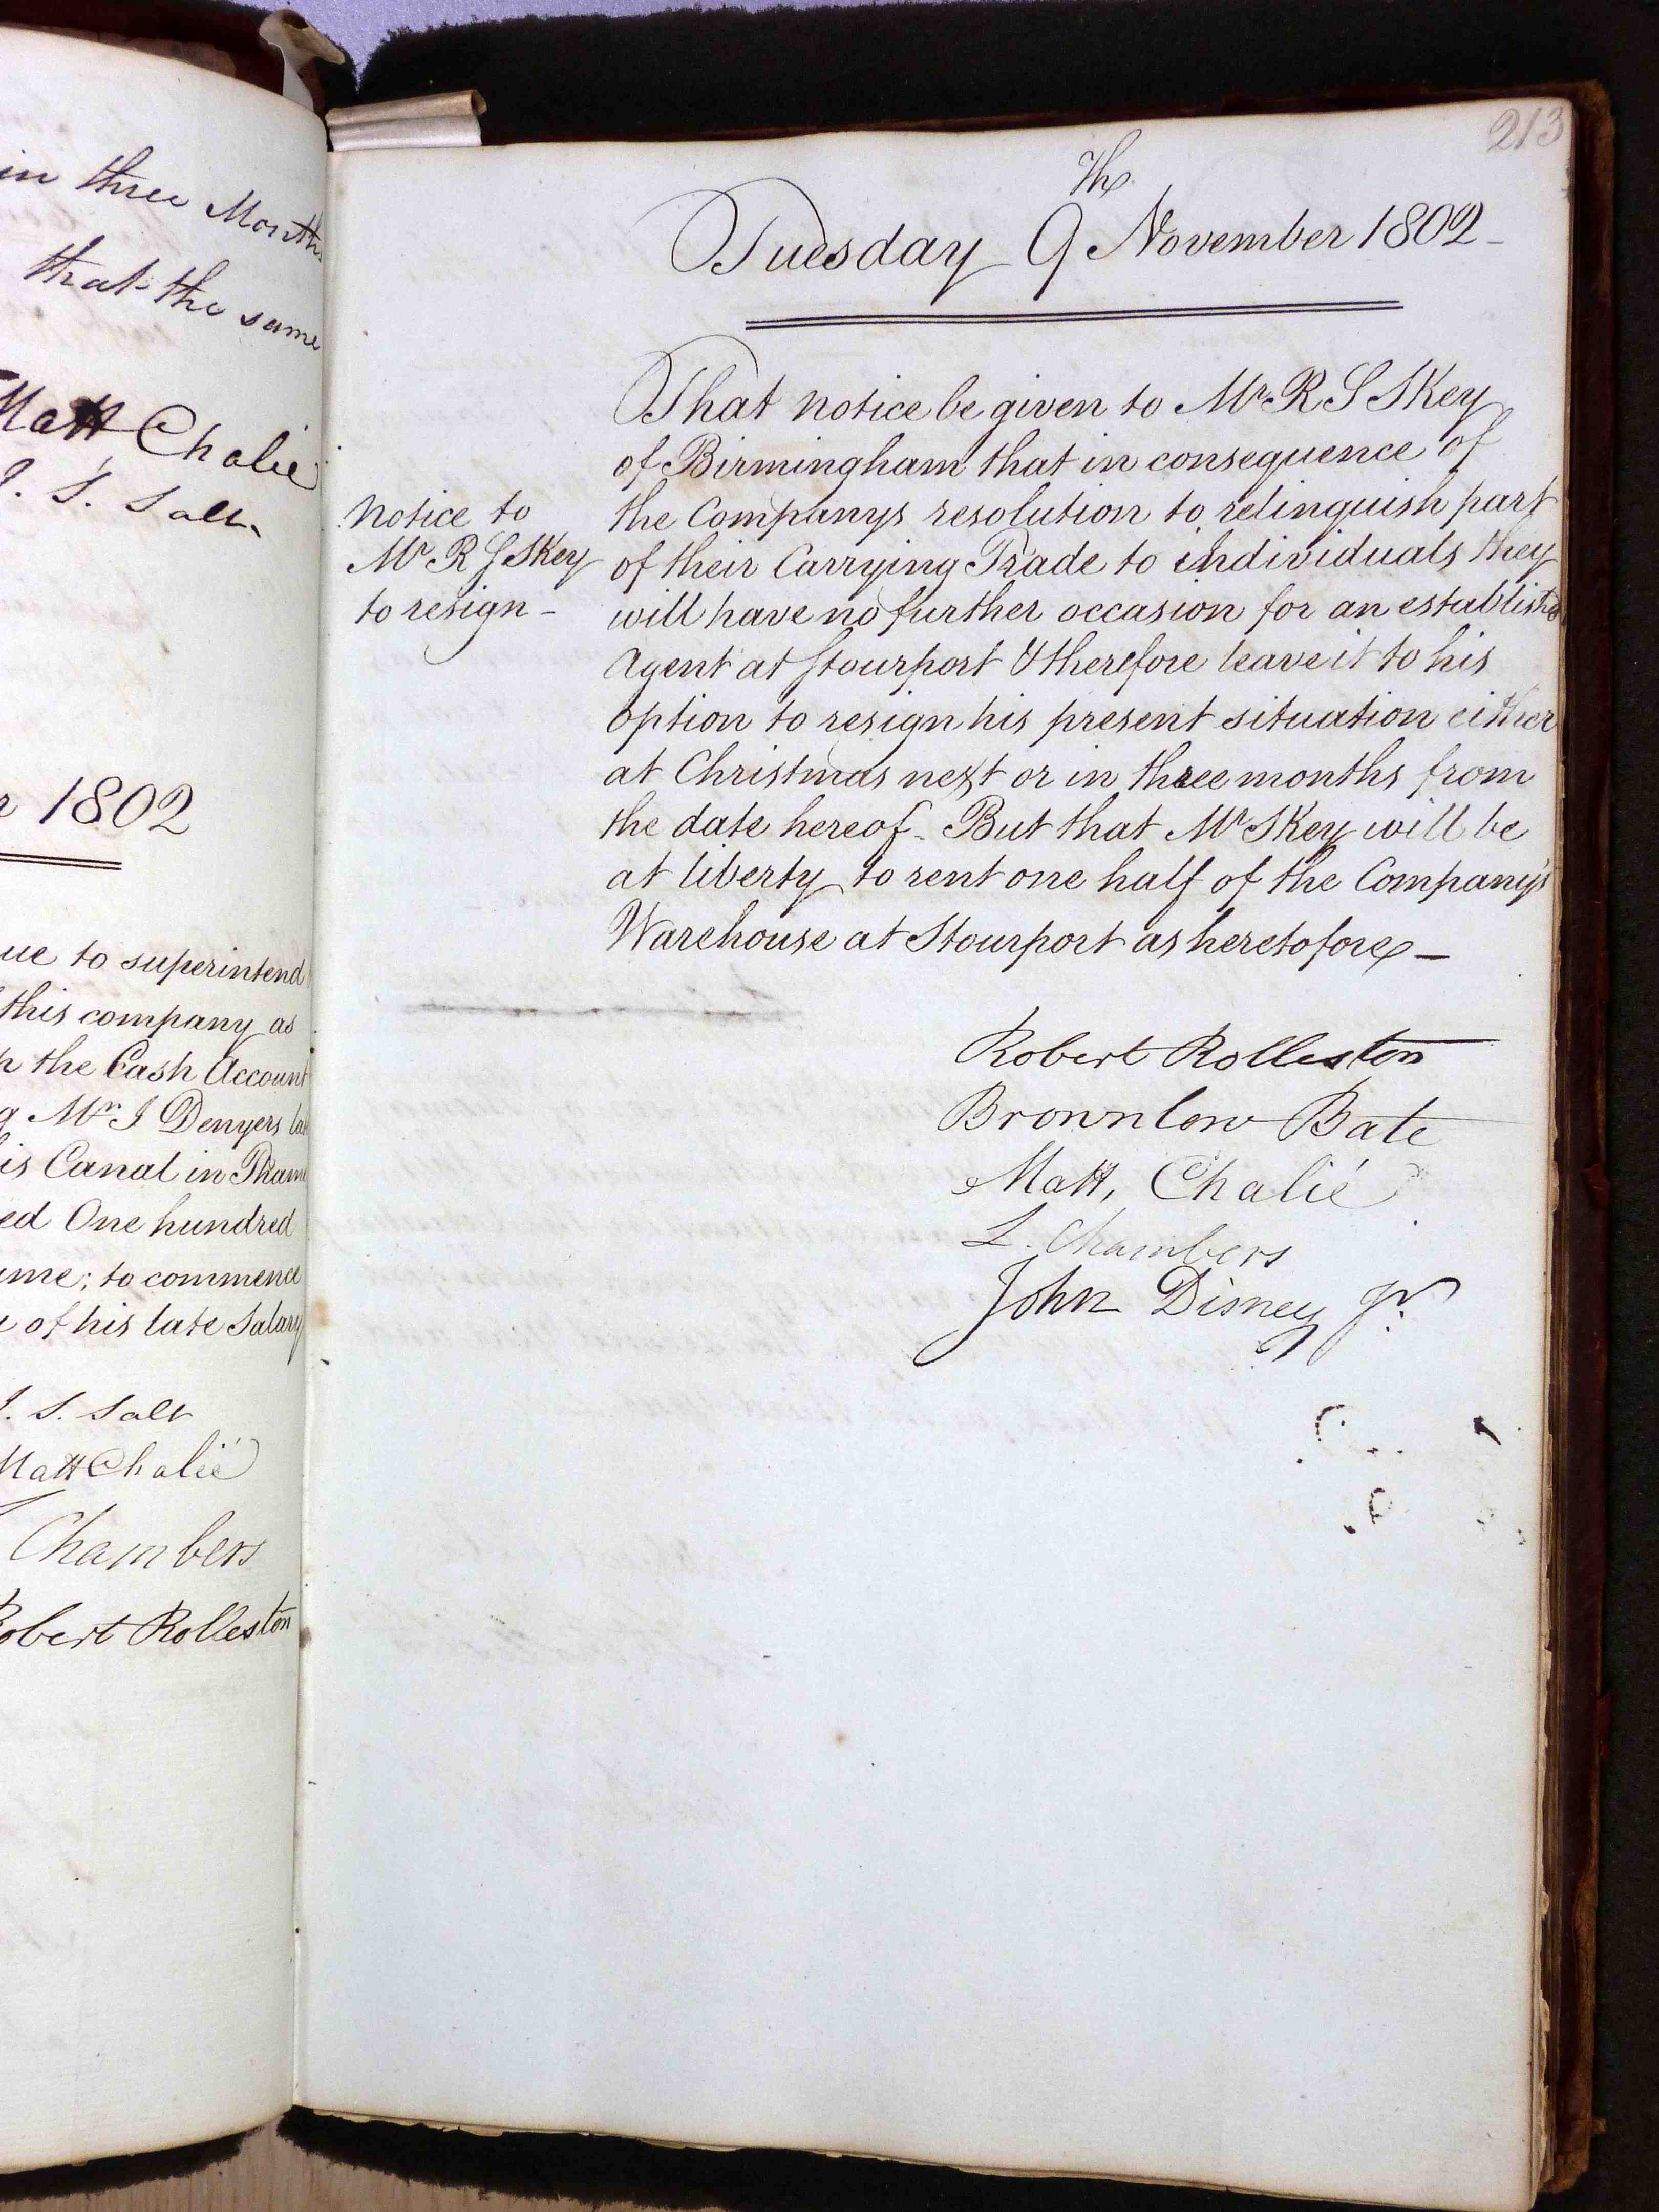 in three Months
that the same
Matt Chalié
J. S. Salt
1802
to superintend
this company as
the Cash Account
Mr J Denyers
is Canal in Thame
One hundred
to commence
of his late Salary
J. S. Salt
Matt Chalié
Chambers
Robert Rolleston
213
Tuesday 9th November 1802
That notice be given to Mr R S Skey
of Birmingham that in consequence of
the Companys resolution to relinquish part
of their Carrying Trade to individuals they
will have no further occasion for an established
Agent at Stourport & therefore leave it to his
option to resign his present situation either
at Christmas next or in three months from
the date hereof. But that Mr Skey will be
at liberty to rent one half of the Company's
Warehouse at Stourport as heretofore
Notice to
Mr R S Skey
to resign
Robert Rolleston
Brownlow Bate
Matt, Chalié
L. Chambers
John Disney Jr.